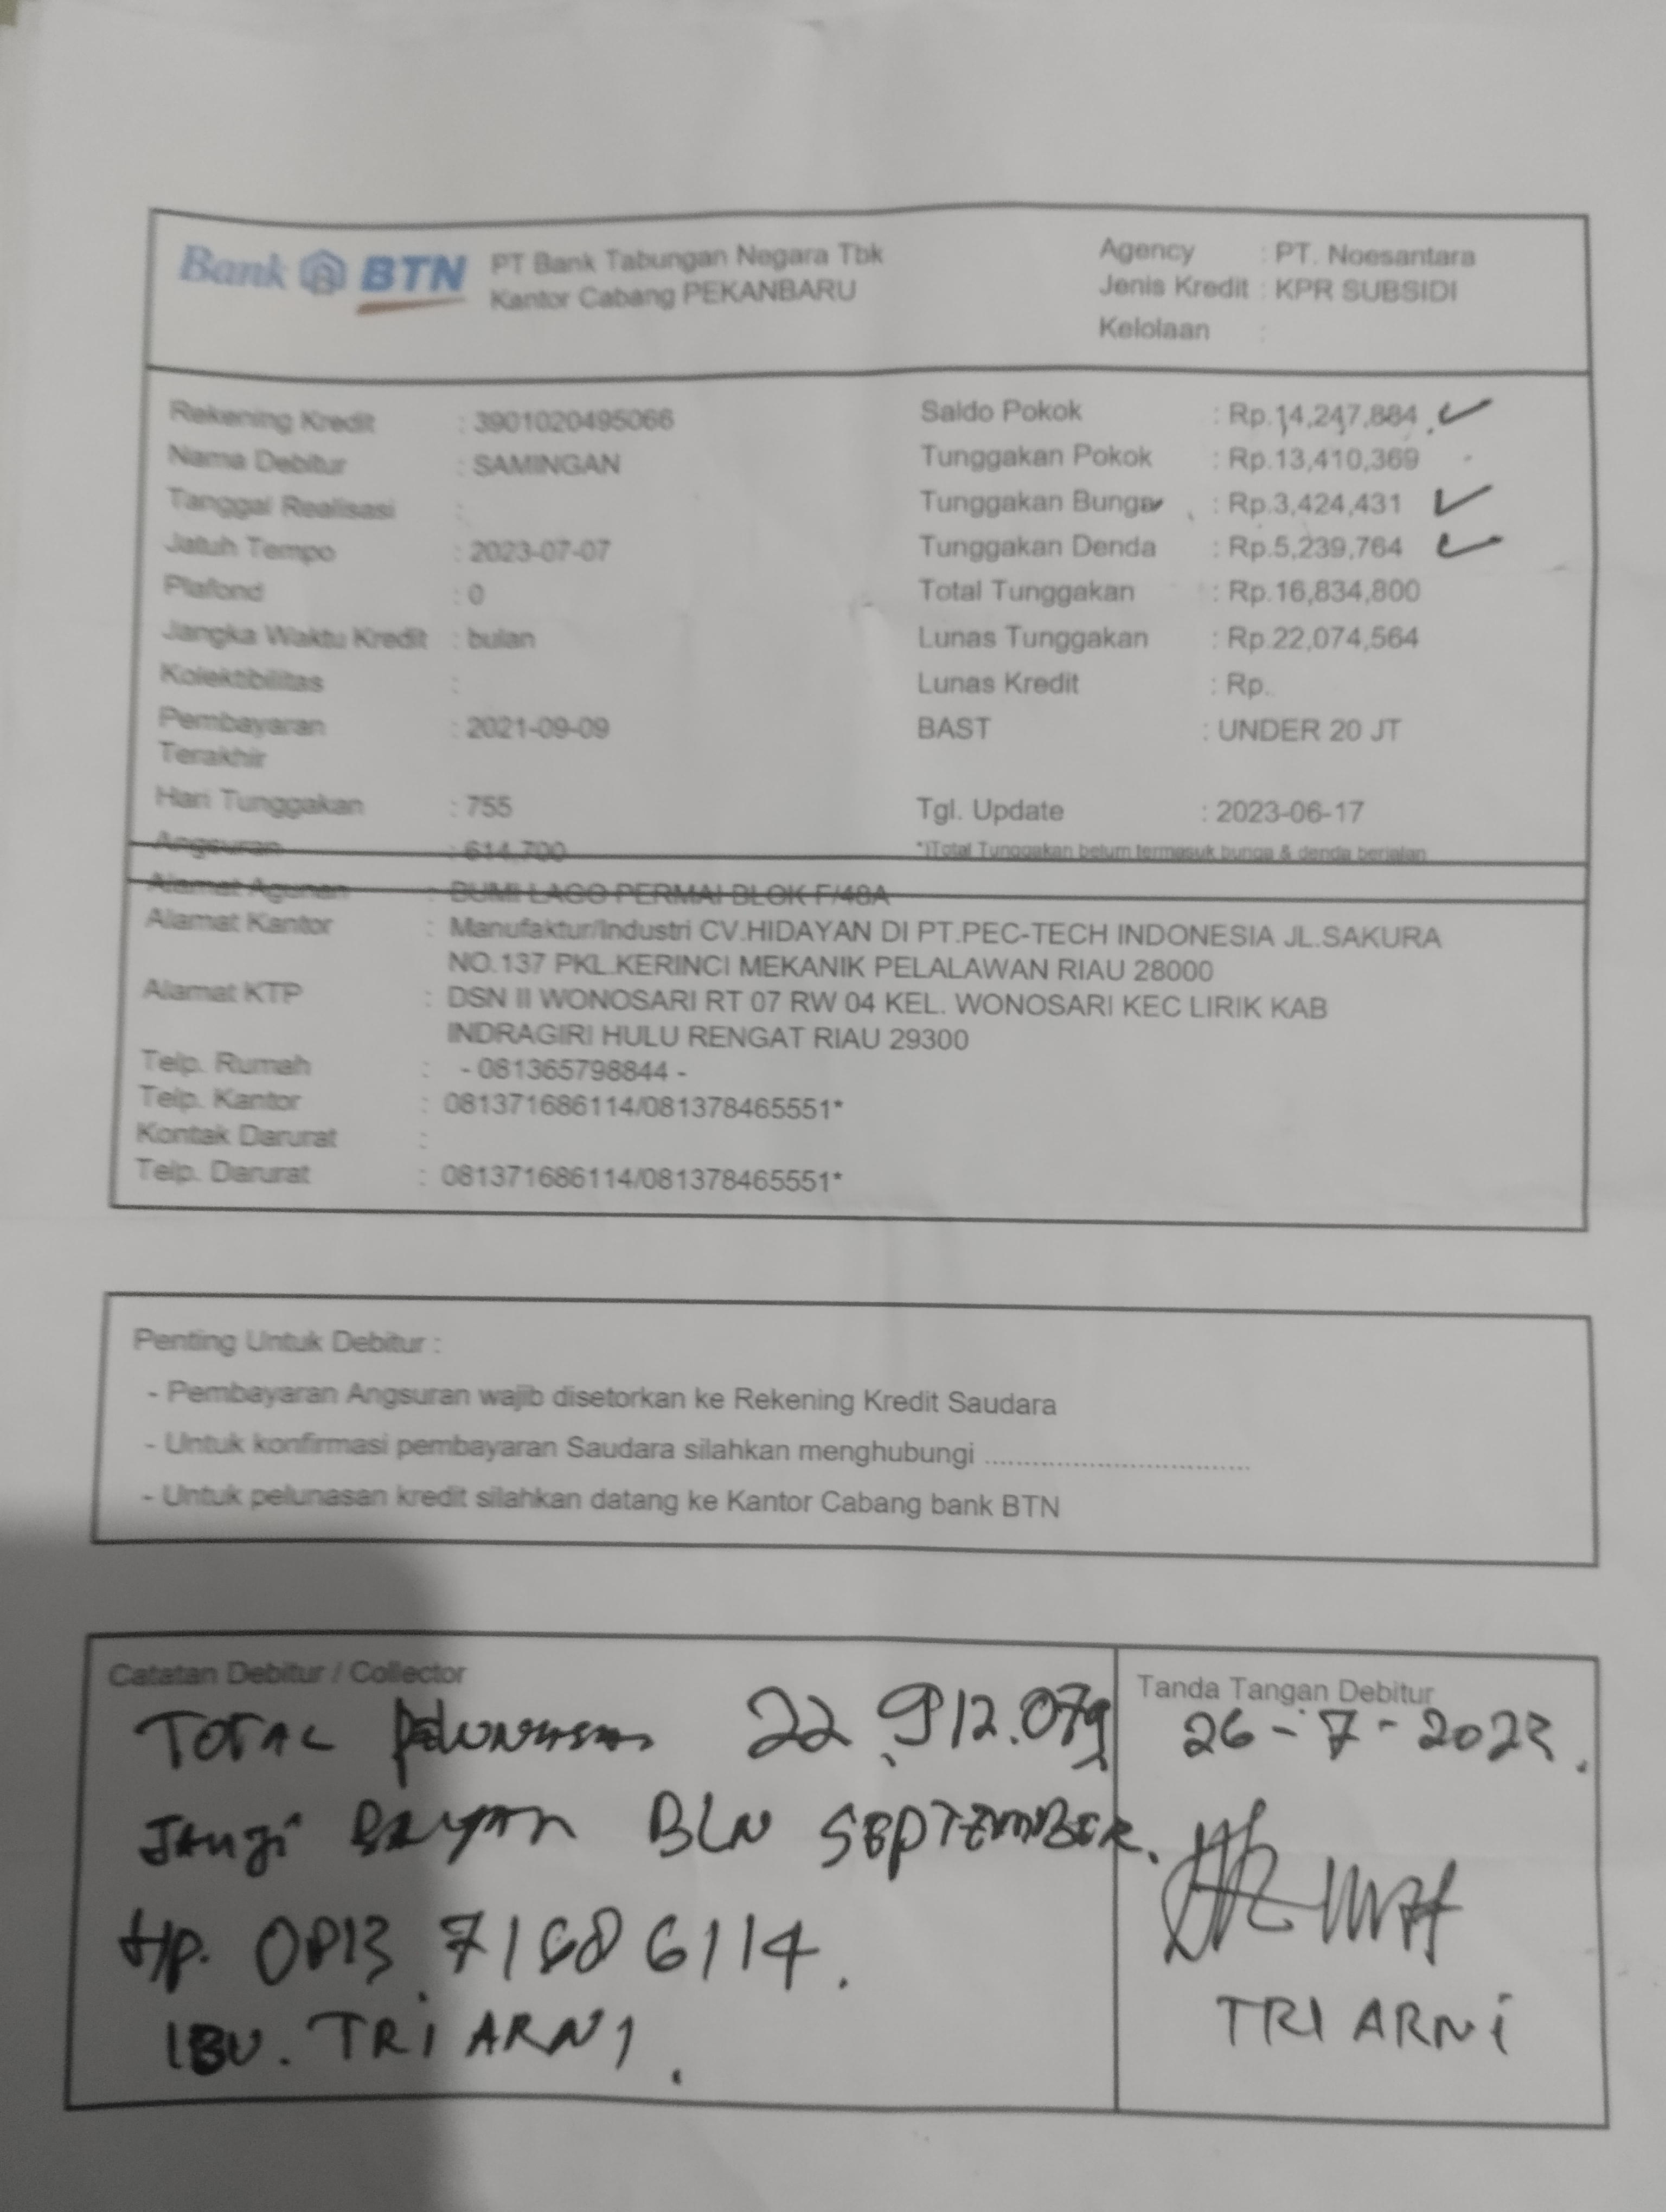 Bank BTN PT Bank Tabungan Negara Tbk
Kantor Cabang PEKANBARU
Agency : PT. Noesantara
Jenis Kredit : KPR SUBSIDI
Kelolaan :
Rekening Kredit : 3901020495066
Nama Debitur : SAMINGAN
Tanggal Realisasi :
Jatuh Tempo : 2023-07-07
Plafond : 0
Jangka Waktu Kredit : bulan
Kolektibilitas :
Pembayaran : 2021-09-09
Terakhir
Hari Tunggakan : 755
Angsuran : 614,700
Saldo Pokok : Rp.14,247,884
Tunggakan Pokok : Rp.13,410,369
Tunggakan Bunga : Rp.3,424,431
Tunggakan Denda : Rp.5,239,764
Total Tunggakan : Rp.16,834,800
Lunas Tunggakan : Rp.22,074,564
Lunas Kredit : Rp.
BAST : UNDER 20 JT
Tgl. Update : 2023-06-17
*)Total Tunggakan belum termasuk bunga & denda berjalan
Alamat Agunan : BUMI LAGO PERMAI BLOK F/48A
Alamat Kantor : Manufaktur/Industri CV.HIDAYAN DI PT.PEC-TECH INDONESIA JL.SAKURA
NO.137 PKL.KERINCI MEKANIK PELALAWAN RIAU 28000
Alamat KTP : DSN II WONOSARI RT 07 RW 04 KEL. WONOSARI KEC LIRIK KAB
INDRAGIRI HULU RENGAT RIAU 29300
Telp. Rumah : - 081365798844 -
Telp. Kantor : 081371686114/081378465551*
Kontak Darurat :
Telp. Darurat : 081371686114/081378465551*
Penting Untuk Debitur :
- Pembayaran Angsuran wajib disetorkan ke Rekening Kredit Saudara
- Untuk konfirmasi pembayaran Saudara silahkan menghubungi ..................................
- Untuk pelunasan kredit silahkan datang ke Kantor Cabang bank BTN
Catatan Debitur / Collector
TOTAL pelunasan 22.912.079
Janji Bayar BLN SEPTEMBER.
Hp. 0813 71686114.
IBU. TRI ARNI.
Tanda Tangan Debitur
26-7-2023.
TRI ARNI